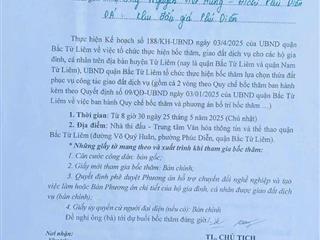 Thực hiện Kế hoạch số 188/KH-UBND ngày 03/4/2025 của UBND quận
Bắc Từ Liêm về việc tổ chức thực hiện bốc thăm, giao đất dịch vụ cho các hộ gia
đình, cá nhân trên địa bàn huyện Từ Liêm (nay là quận Bắc Từ Liêm và quận Nam
Từ Liêm), UBND quận Bắc Từ Liêm tổ chức thực hiện bốc thăm lựa chọn thửa đất
phục vụ công tác giao đất dịch vụ (gồm cả 2 vòng theo Quy chế bốc thăm ban hành
kèm theo Quyết định số 09/QĐ-UBND ngày 03/01/2025 của UBND quận Bắc Từ
Liêm về việc ban hành Quy chế bốc thăm và phương án bố trí bốc thăm ....)
1. Thời gian: Từ 8 giờ 30 ngày 25 tháng 5 năm 2025 (Chủ nhật)
2. Địa điểm: Nhà thi đấu - Trung tâm Văn hóa thông tin và thể thao quận
Bắc Từ Liêm (đường Võ Quý Huân, phường Phúc Diễn, quận Bắc Từ Liêm).
* Những giấy tờ mang theo và xuất trình khi tham gia bốc thăm:
1. Căn cước công dân: bản gốc;
2. Giấy mời tham gia bốc thăm: Bản chính;
3. Quyết định phê duyệt Phương án hỗ trợ chuyển đổi nghề nghiệp và tạo
việc làm hoặc Bản Phương án chi tiết của hộ gia đình, cá nhân được giao đất dịch
vụ (bản chính);
4. Giấy ủy quyền cử người đại diện (nếu có): Bản chính
Đề nghị ông (bà) tới dự buổi bốc thăm đúng giờ
Nơi nhận:
TL. CHỦ TỊCH